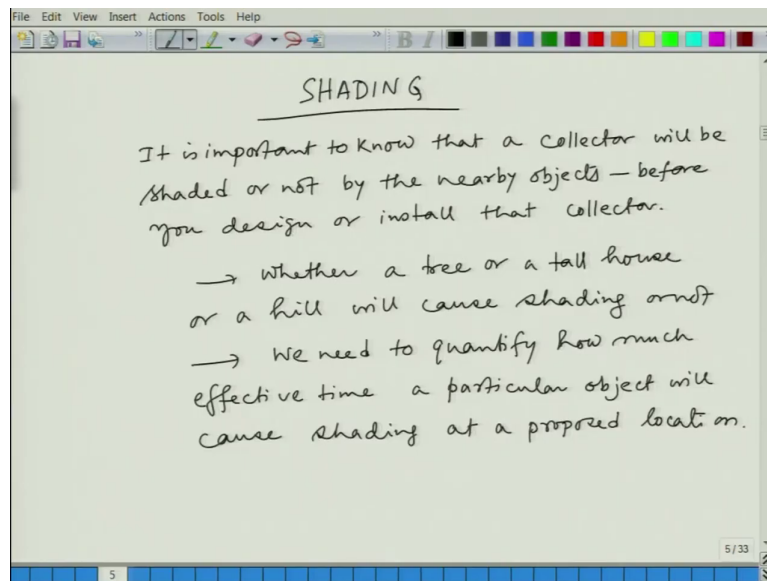 File Edit View Insert Actions Tools Help
SHADING
It is important to know that a collector will be
shaded or not by the nearby objects — before
you design or install that collector.
→ Whether a tree or a tall house
or a hill will cause shading or not
→ We need to quantify how much
effective time a particular object will
cause shading at a proposed location.
5/33
5